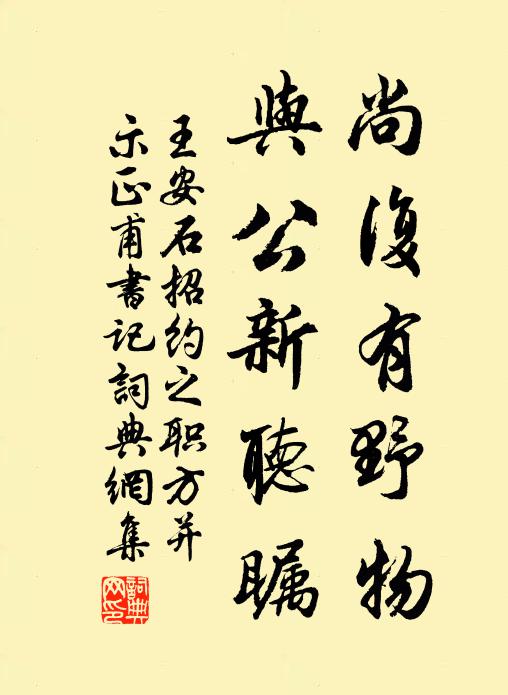 尚復有野物
與公新聽矚
王安石招约之职方并
示正甫書记詞典網集
詞典網印